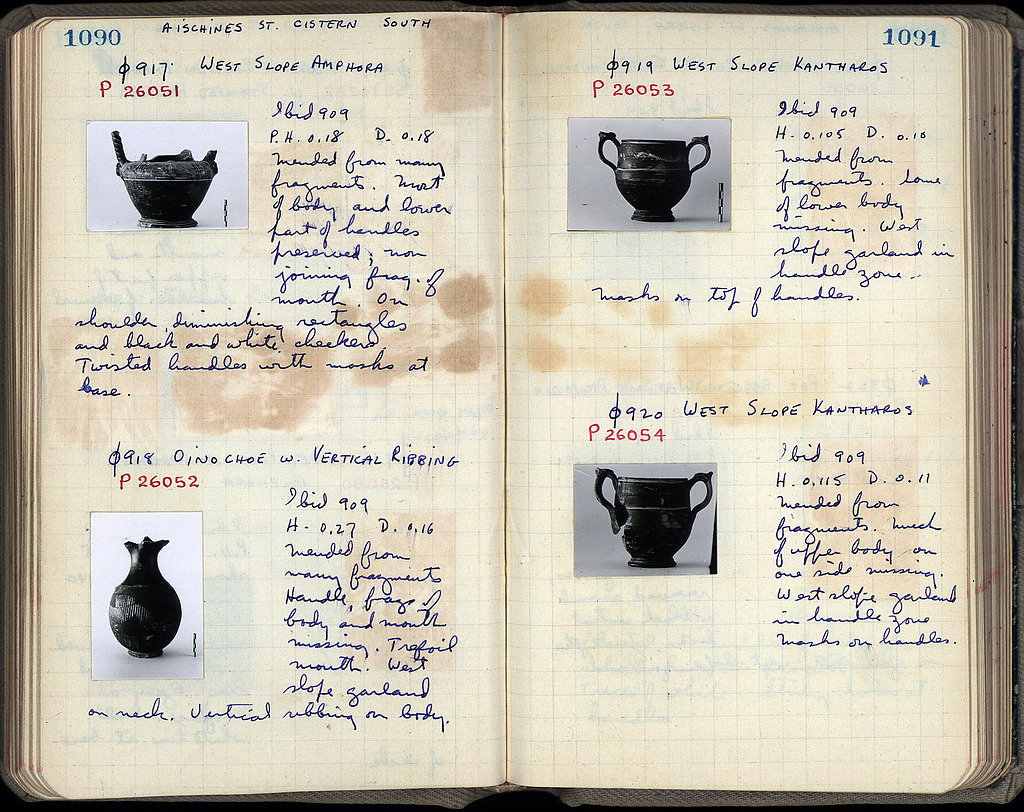 1090
AISCHINES ST. CISTERN SOUTH
φ917. WEST SLOPE AMPHORA
P 26051
Ibid 909
P.H. 0.18 D. 0.18
Mended from many
fragments. Most
of body and lower
part of handles
preserved; non
joining frag. of
mouth. On
shoulder, diminishing rectangles
and black and white checkers.
Twisted handles with masks at
base.
φ918 OINOCHOE W. VERTICAL RIBBING
P 26052
Ibid 909
H. 0.27 D. 0.16
Mended from
many fragments
Handle, frags of
body and mouth
missing. Trefoil
mouth. West
slope garland
on neck. Vertical ribbing on body.
1091
φ919 WEST SLOPE KANTHAROS
P 26053
Ibid 909
H. 0.105 D. 0.10
Mended from
fragments. Some
of lower body
missing. West
slope garland in
handle zone.
masks on top of handles.
φ920 WEST SLOPE KANTHAROS
P 26054
Ibid 909
H. 0.115 D. 0.11
Mended from
fragments. Much
of upper body on
one side missing.
West slope garland
in handle zone
masks on handles.